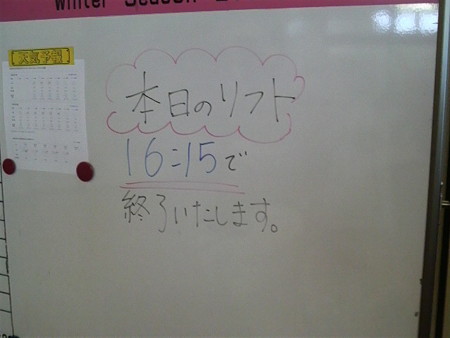 Winter Season
天気予報
本日のリフト
16:15で
終了いたします。